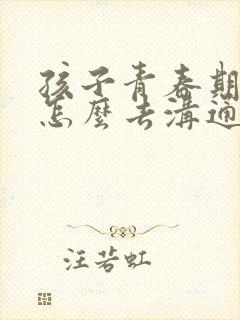 孩子青春期
怎麼去溝通
汪若虹